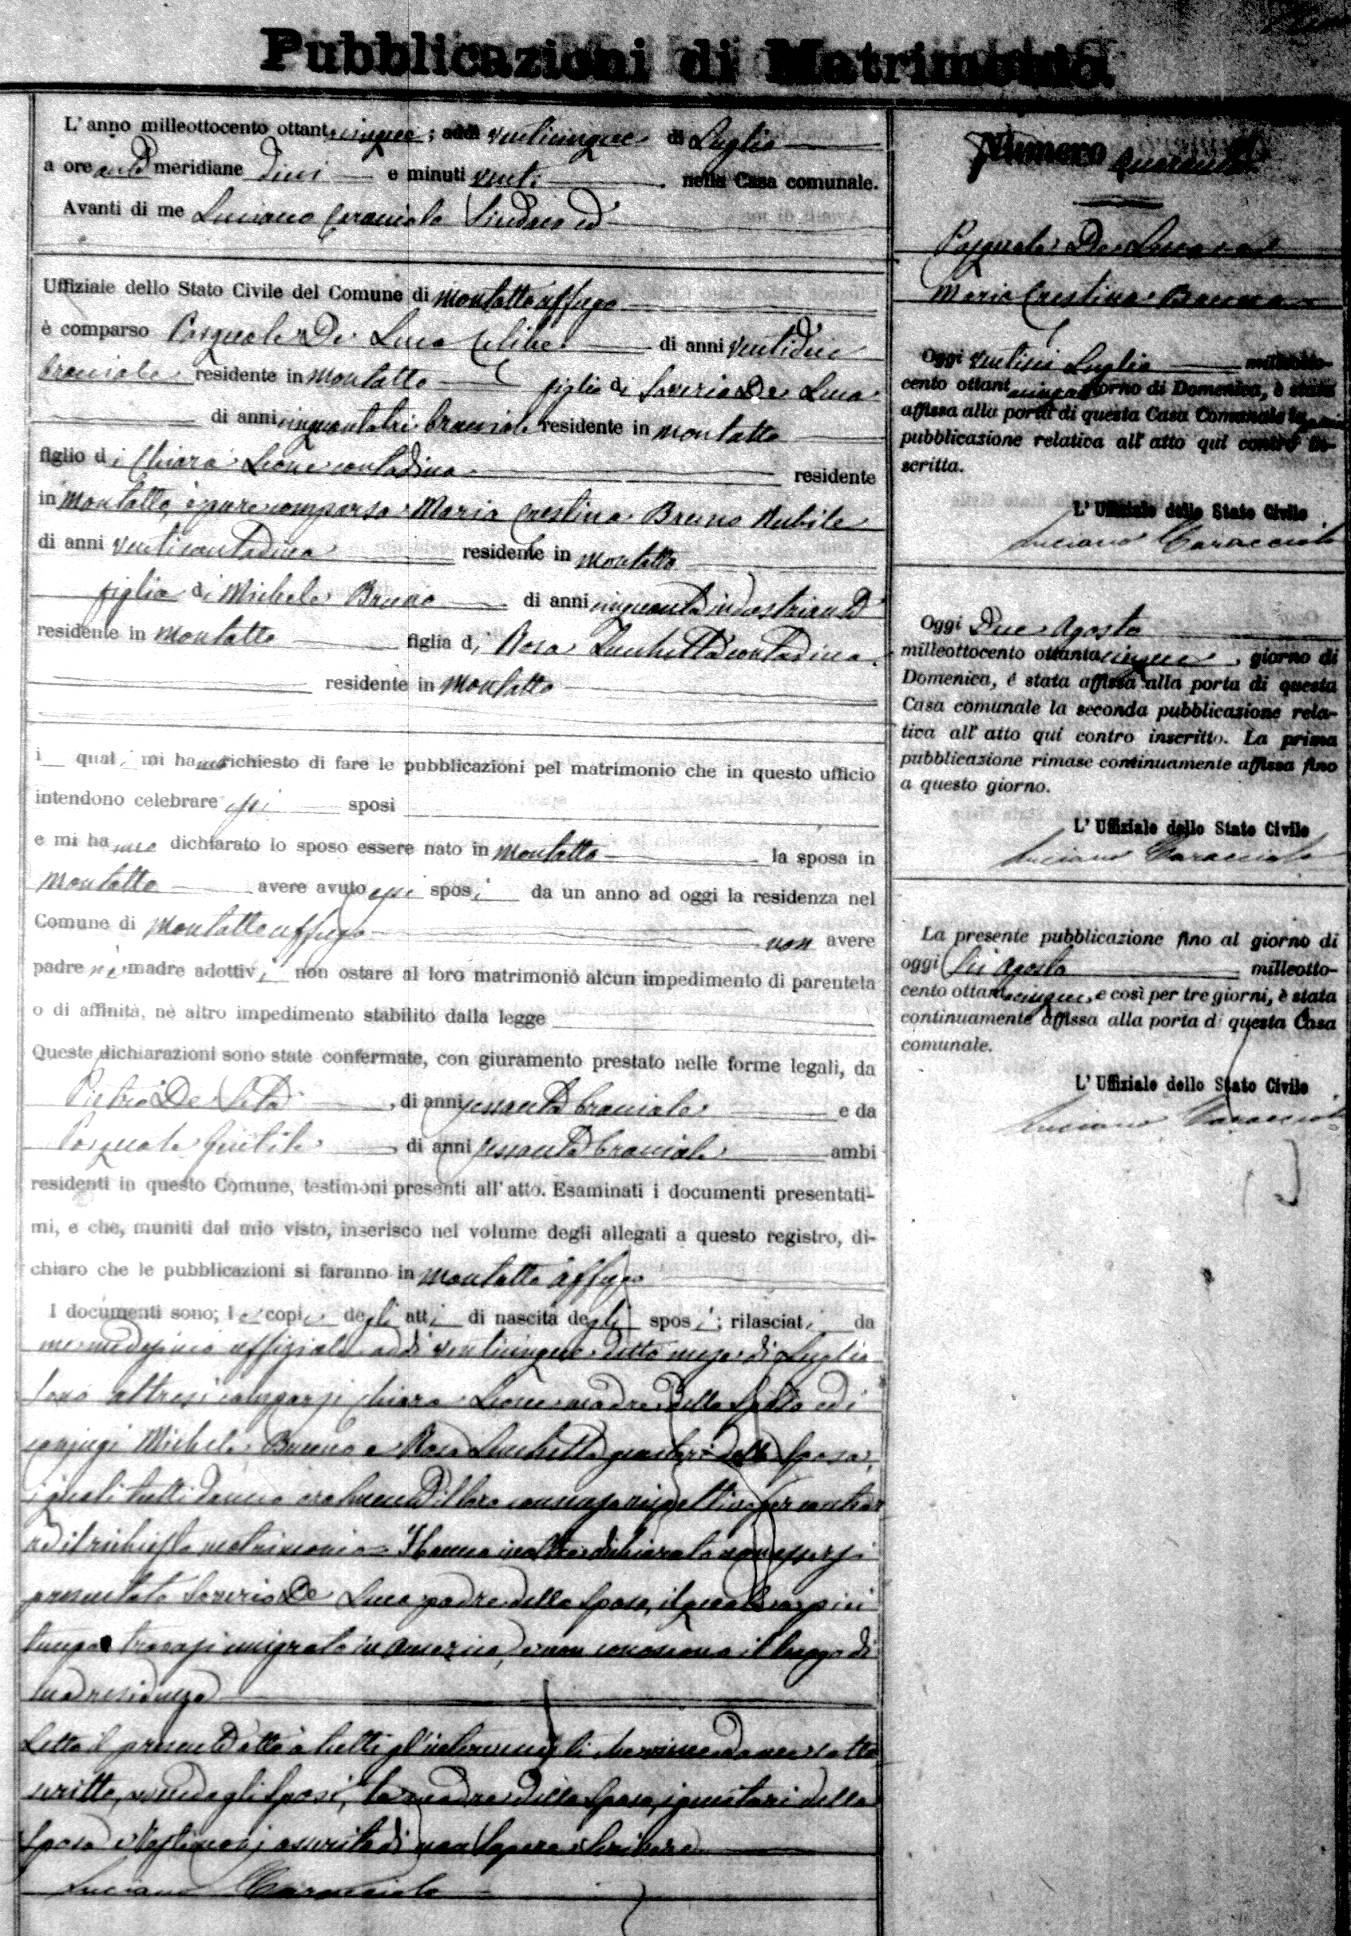 Pubblicazioni di Matrimonio
L'anno milleottocento ottantacinque; addì venticinque di Luglio
a ore anti meridiane dieci e minuti venti nella Casa comunale.
Avanti di me Luciano Caracciolo Sindaco ed
Uffiziale dello Stato Civile del Comune di Montalto uffugo
è comparso Pasquale De Luca Celibe di anni ventidue
bracciale residente in Montalto figlio di Saverio De Luca
di anni cinquantatri bracciale residente in Montalto
figlio di Chiara Leone contadina residente
in Montalto, è pure comparsa Maria Crestina Bruno Nubile
di anni venti contadina residente in Montalto
figlia di Michele Bruno di anni cinquanta industriante
residente in Montalto figlia di Rosa contadina
residente in Montalto
i quali mi hanno richiesto di fare le pubblicazioni pel matrimonio che in questo ufficio
intendono celebrare essi sposi
e mi hanno dichiarato lo sposo essere nato in Montalto la sposa in
Montalto avere avuto essi sposi da un anno ad oggi la residenza nel
Comune di Montalto uffugo non avere
padre nè madre adottivi non ostare al loro matrimonio alcun impedimento di parentela
o di affinità, nè altro impedimento stabilito dalla legge
Queste dichiarazioni sono state confermate, con giuramento prestato nelle forme legali, da
Pietro De Seta di anni sessanta bracciale e da
Pasquale Gentile di anni sessanta bracciale ambi
residenti in questo Comune, testimoni presenti all'atto. Esaminati i documenti presentati-
mi, e che, muniti dal mio visto, inserisco nel volume degli allegati a questo registro, di-
chiaro che le pubblicazioni si faranno in Montalto uffugo
I documenti sono; le copie degli atti di nascita degli sposi; rilasciati da
me medesimo uffiziale addì venticinque detto mese di Luglio
Sono altresì comparsi Chiara Leone madre dello Sposo ed i
conjugi Michele Bruno e Rosa genitori della Sposa,
i quali tutti danno oralmente il loro consenso rispettivo per contrar
re il richiesto matrimonio = Hanno inoltre dichiarato non essersi
presentato Saverio De Luca padre dello Sposo, il quale
tempo trovasi emigrato in America, e non conoscono il luogo di
sua residenza
Letto il presente atto a tutti gl'intervenuti sotto
scritto, degli Sposi, la madre dello Sposo, i genitori della
Sposa e Testimonj asserito di non Sapere Scrivere
Luciano Caracciolo
Numero quaranta
Pasquale De Luca ed
Maria Crestina Bruno
Oggi ventisei Luglio milleotto-
cento ottantacinque giorno di Domenica, è stata
affissa alla porta di questa Casa Comunale la prima
pubblicazione relativa all'atto qui contro in-
scritta.
L'Uffiziale dello Stato Civile
Luciano Caracciolo
Oggi Due Agosto
milleottocento ottantacinque, giorno di
Domenica, é stata affissa alla porta di questa
Casa comunale la seconda pubblicazione rela-
tiva all'atto qui contro inscritto. La prima
pubblicazione rimase continuamente affissa fino
a questo giorno.
L'Uffiziale dello Stato Civile
Luciano Caracciolo
La presente pubblicazione fino al giorno di
oggi Sei Agosto milleotto-
cento ottantacinque, e così per tre giorni, è stata
continuamente affissa alla porta di questa Casa
comunale.
L'Uffiziale dello Stato Civile
Luciano Caracciolo